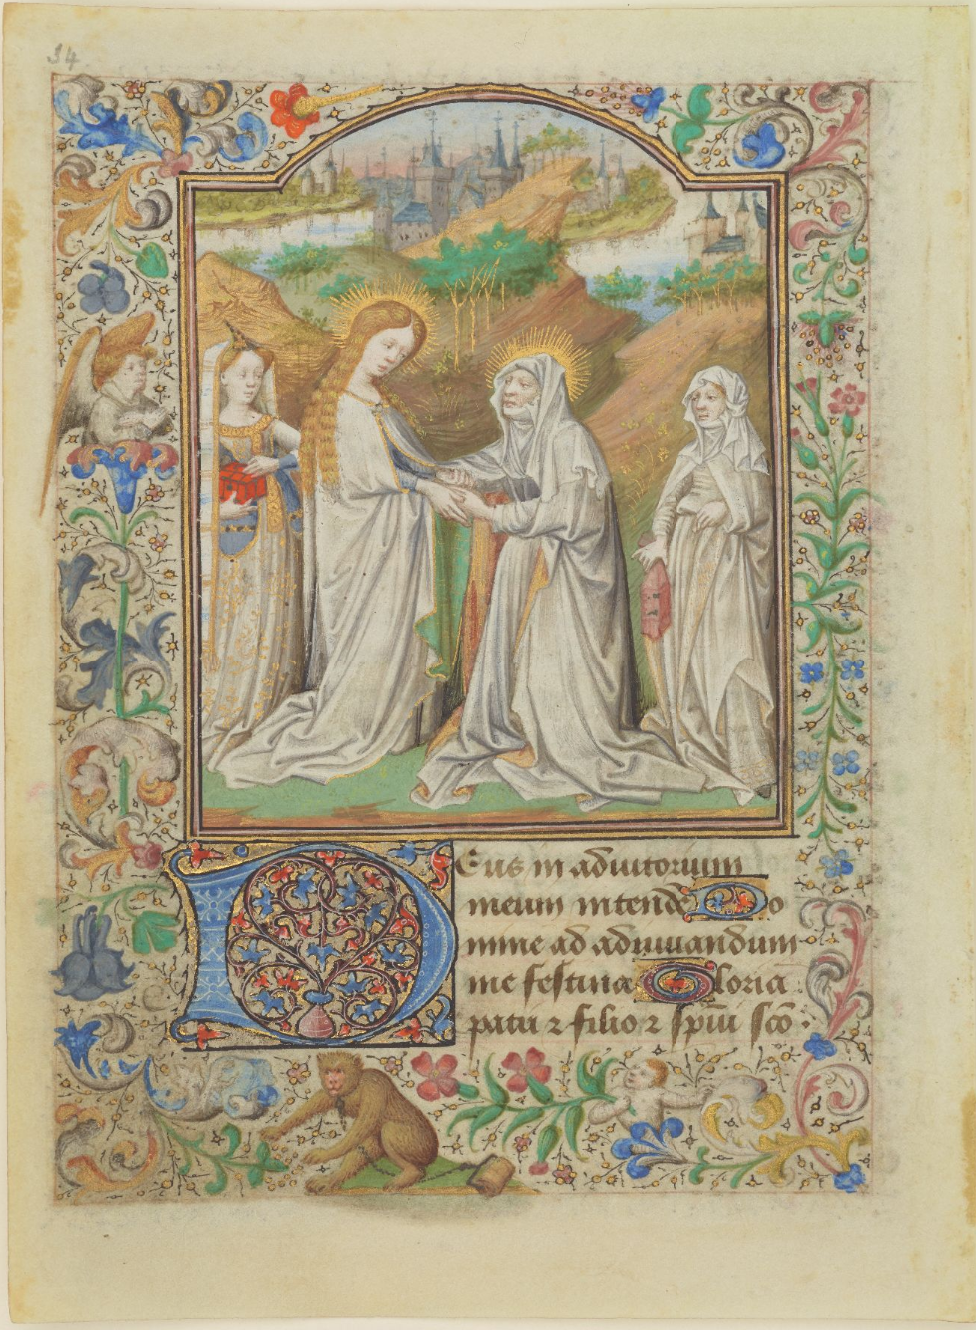 34
Deus in adiutorium
meum intende Do
mine ad adiuuandum
me festina Gloria
patri ⁊ filio ⁊ spiui sco